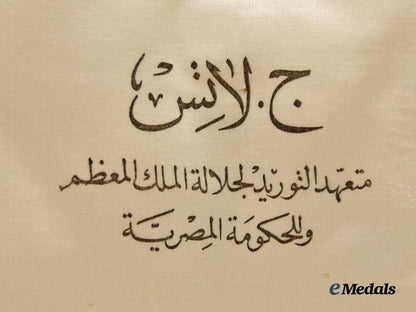 ج. لاتِسْ
متعهّد التوريْد لجلالة الملك المعظم
وللحكومَة المِصْريَّة
eMedals